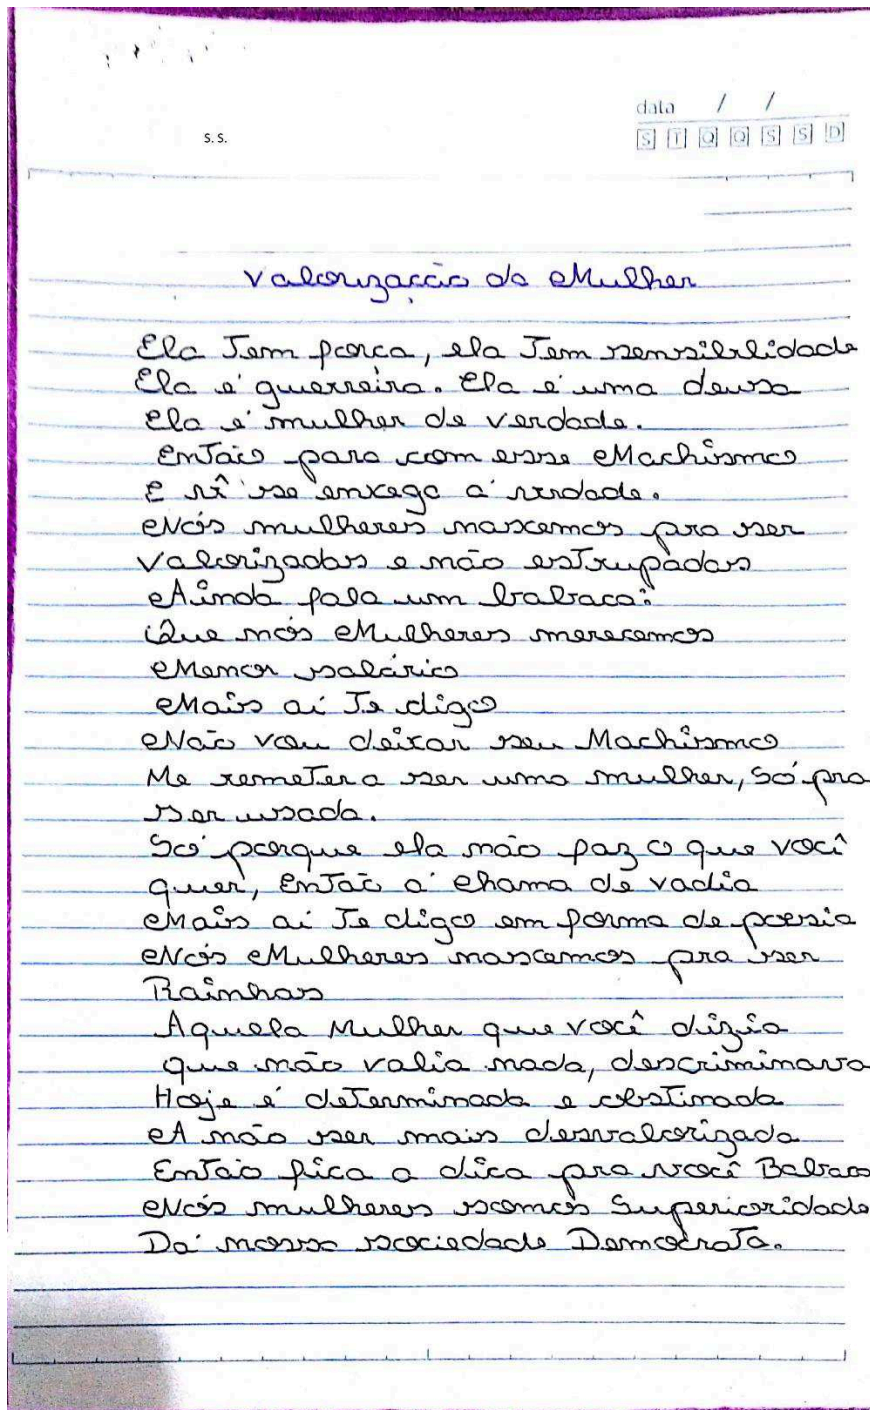 data / /
S T Q Q S S D
S. S.
Valorização da Mulher
Ela Tem força, ela Tem sensibilidade
Ela é guerreira. Ela é uma deusa
Ela é mulher de verdade.
Então para com esse Machismo
E vê se enxega a verdade.
Nós mulheres nascemos pra ser
Valorizadas e não estrupadas
Ainda fala um babaca:
Que nós Mulheres merecemos
Menor salário
Mais aí Te digo
Não vou deixar seu Machismo
Me remeter a ser uma mulher, Só pra
ser usada.
Só porque ela não faz o que você
quer, Então á chama de vadia
Mais aí Te digo em forma de poesia
Nós Mulheres nascemos pra ser
Rainhas
Aquela Mulher que você dizia
que não valia nada, descriminava
Hoje é determinada e obstinada
A não ser mais desvalorizada
Então fica a dica pra você Babaca
Nós mulheres somos Superioridade
Da nossa sociedade Democrata.